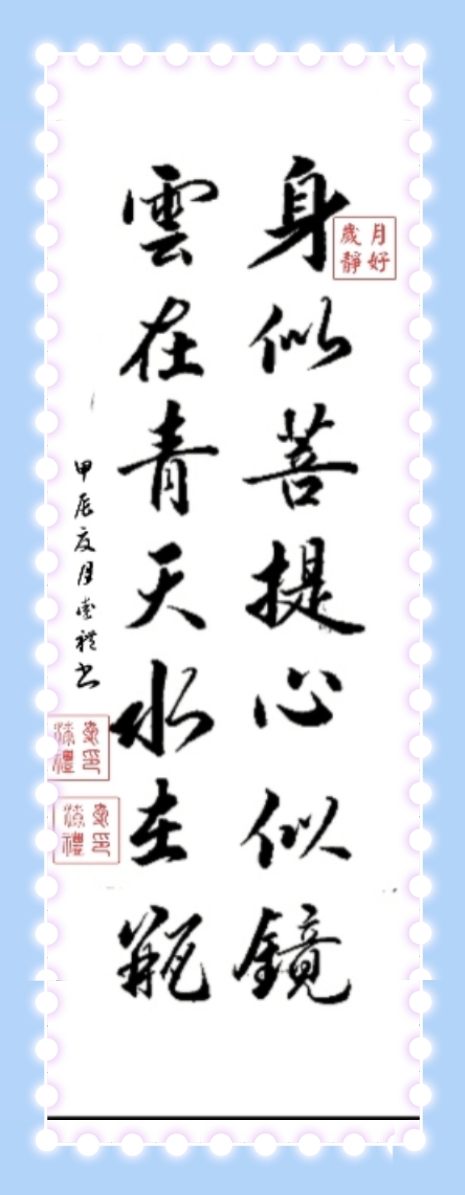 身似菩提心似镜
雲在青天水在瓶
甲辰夏月
書
月好
歲靜